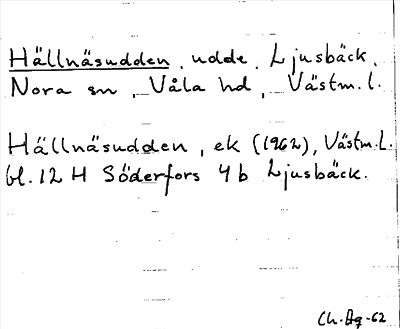 Hällnäsudden, udde, Ljusbäck,
Nora sn, Våla hd, Västm. l.
Hällnäsudden, ek (1962), Västm. l.
bl. 12 H Söderfors 4 b Ljusbäck.
Ch. Ag -62